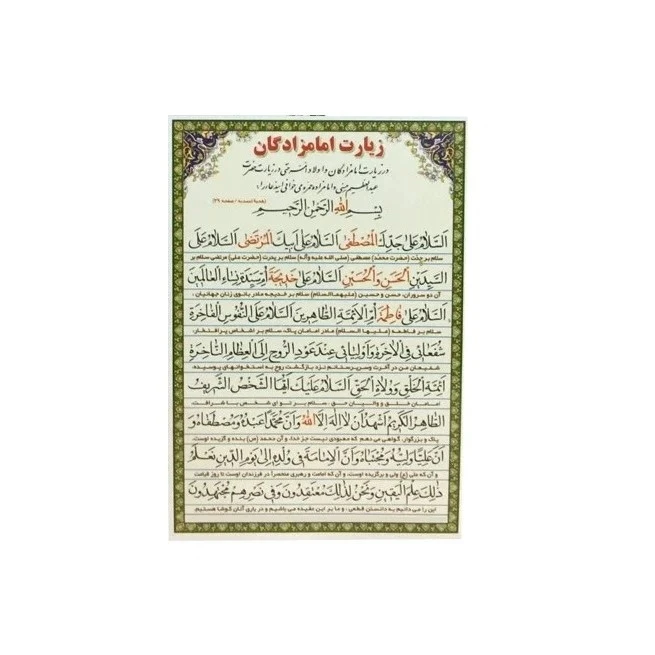 زیارت امامزادگان
در زیارت امامزادگان و اولاد ائمه حتی در زیارت حضرت
عبدالعظیم حسنی و امامزاده حمزه می خوانی
(هدیة الصفحه ۲۹)
بِسْمِ اللهِ الرَّحْمٰنِ الرَّحیمِ
اَلسَّلامُ عَلی جَدِّكَ الْمُصْطَفی اَلسَّلامُ عَلی اَبیكَ الْمُرْتَضی اَلسَّلامُ عَلَی
سلام بر جدت (حضرت محمد) مصطفی (صلی الله علیه وآله) سلام بر پدرت (حضرت علی) مرتضی سلام بر
السَّیِّدَیْنِ الْحَسَنِ وَالْحُسَیْنِ اَلسَّلامُ عَلی خَدیجَةَ اُمِّ سَیِّدَةِ نِساءِ الْعالَمینَ
آن دو سروران، حسن و حسین (علیهما السلام) سلام بر خدیجه مادر بانوی زنان جهانیان،
اَلسَّلامُ عَلی فاطِمَةَ اُمِّ الْاَئِمَّةِ الطّاهِرینَ اَلسَّلامُ عَلَی النُّفُوسِ الْفاخِرَةِ
سلام بر فاطمه (علیها السلام) مادر امامان پاک، سلام بر اشخاص پرافتخار،
شُفَعائی فِی الْاخِرَةِ وَاَوْلِیائی عِنْدَ عَوْدِ الرُّوحِ اِلَی الْعِظامِ النّاخِرَةِ
شفیعان من در آخرت وسرپرستانم نزد بازگشت روح به استخوانهای پوسیده،
اَئِمَّةِ الْخَلْقِ وَوُلاةِ الْحَقِّ اَلسَّلامُ عَلَیْكَ اَیُّهَا الشَّخْصُ الشَّریفُ
امامان خلق و والیان حق، سلام بر تو ای شخص با شرافت،
الطّاهِرُ الْکَریمُ اَشْهَدُ اَنْ لا اِلٰهَ اِلَّا اللهُ وَاَنَّ مُحَمَّدًا عَبْدُهُ وَمُصْطَفاهُ وَ
پاک و بزرگوار، گواهی می دهم که معبودی نیست جز خدا، و آن محمد (ص) بنده و گزیده اوست.
اَنَّ عَلِیًّا وَلِیُّهُ وَمُجْتَباهُ وَاَنَّ الْاِمامَةَ فی وُلْدِهِ اِلی یَوْمِ الدّینِ نَعْلَمُ
و آن که علی (ع) ولی و برگزیده اوست، و آن که امامت و رهبری منحصراً در فرزندان اوست تا روز قیامت
ذٰلِكَ عِلْمَ الْیَقینِ وَنَحْنُ لِذٰلِكَ مُعْتَقِدُونَ وَفی نَصْرِهِمْ مُجْتَهِدُونَ
این را می دانیم به دانستن قطعی، و ما بر این عقیده می باشیم و در یاری آنان کوشا هستیم.